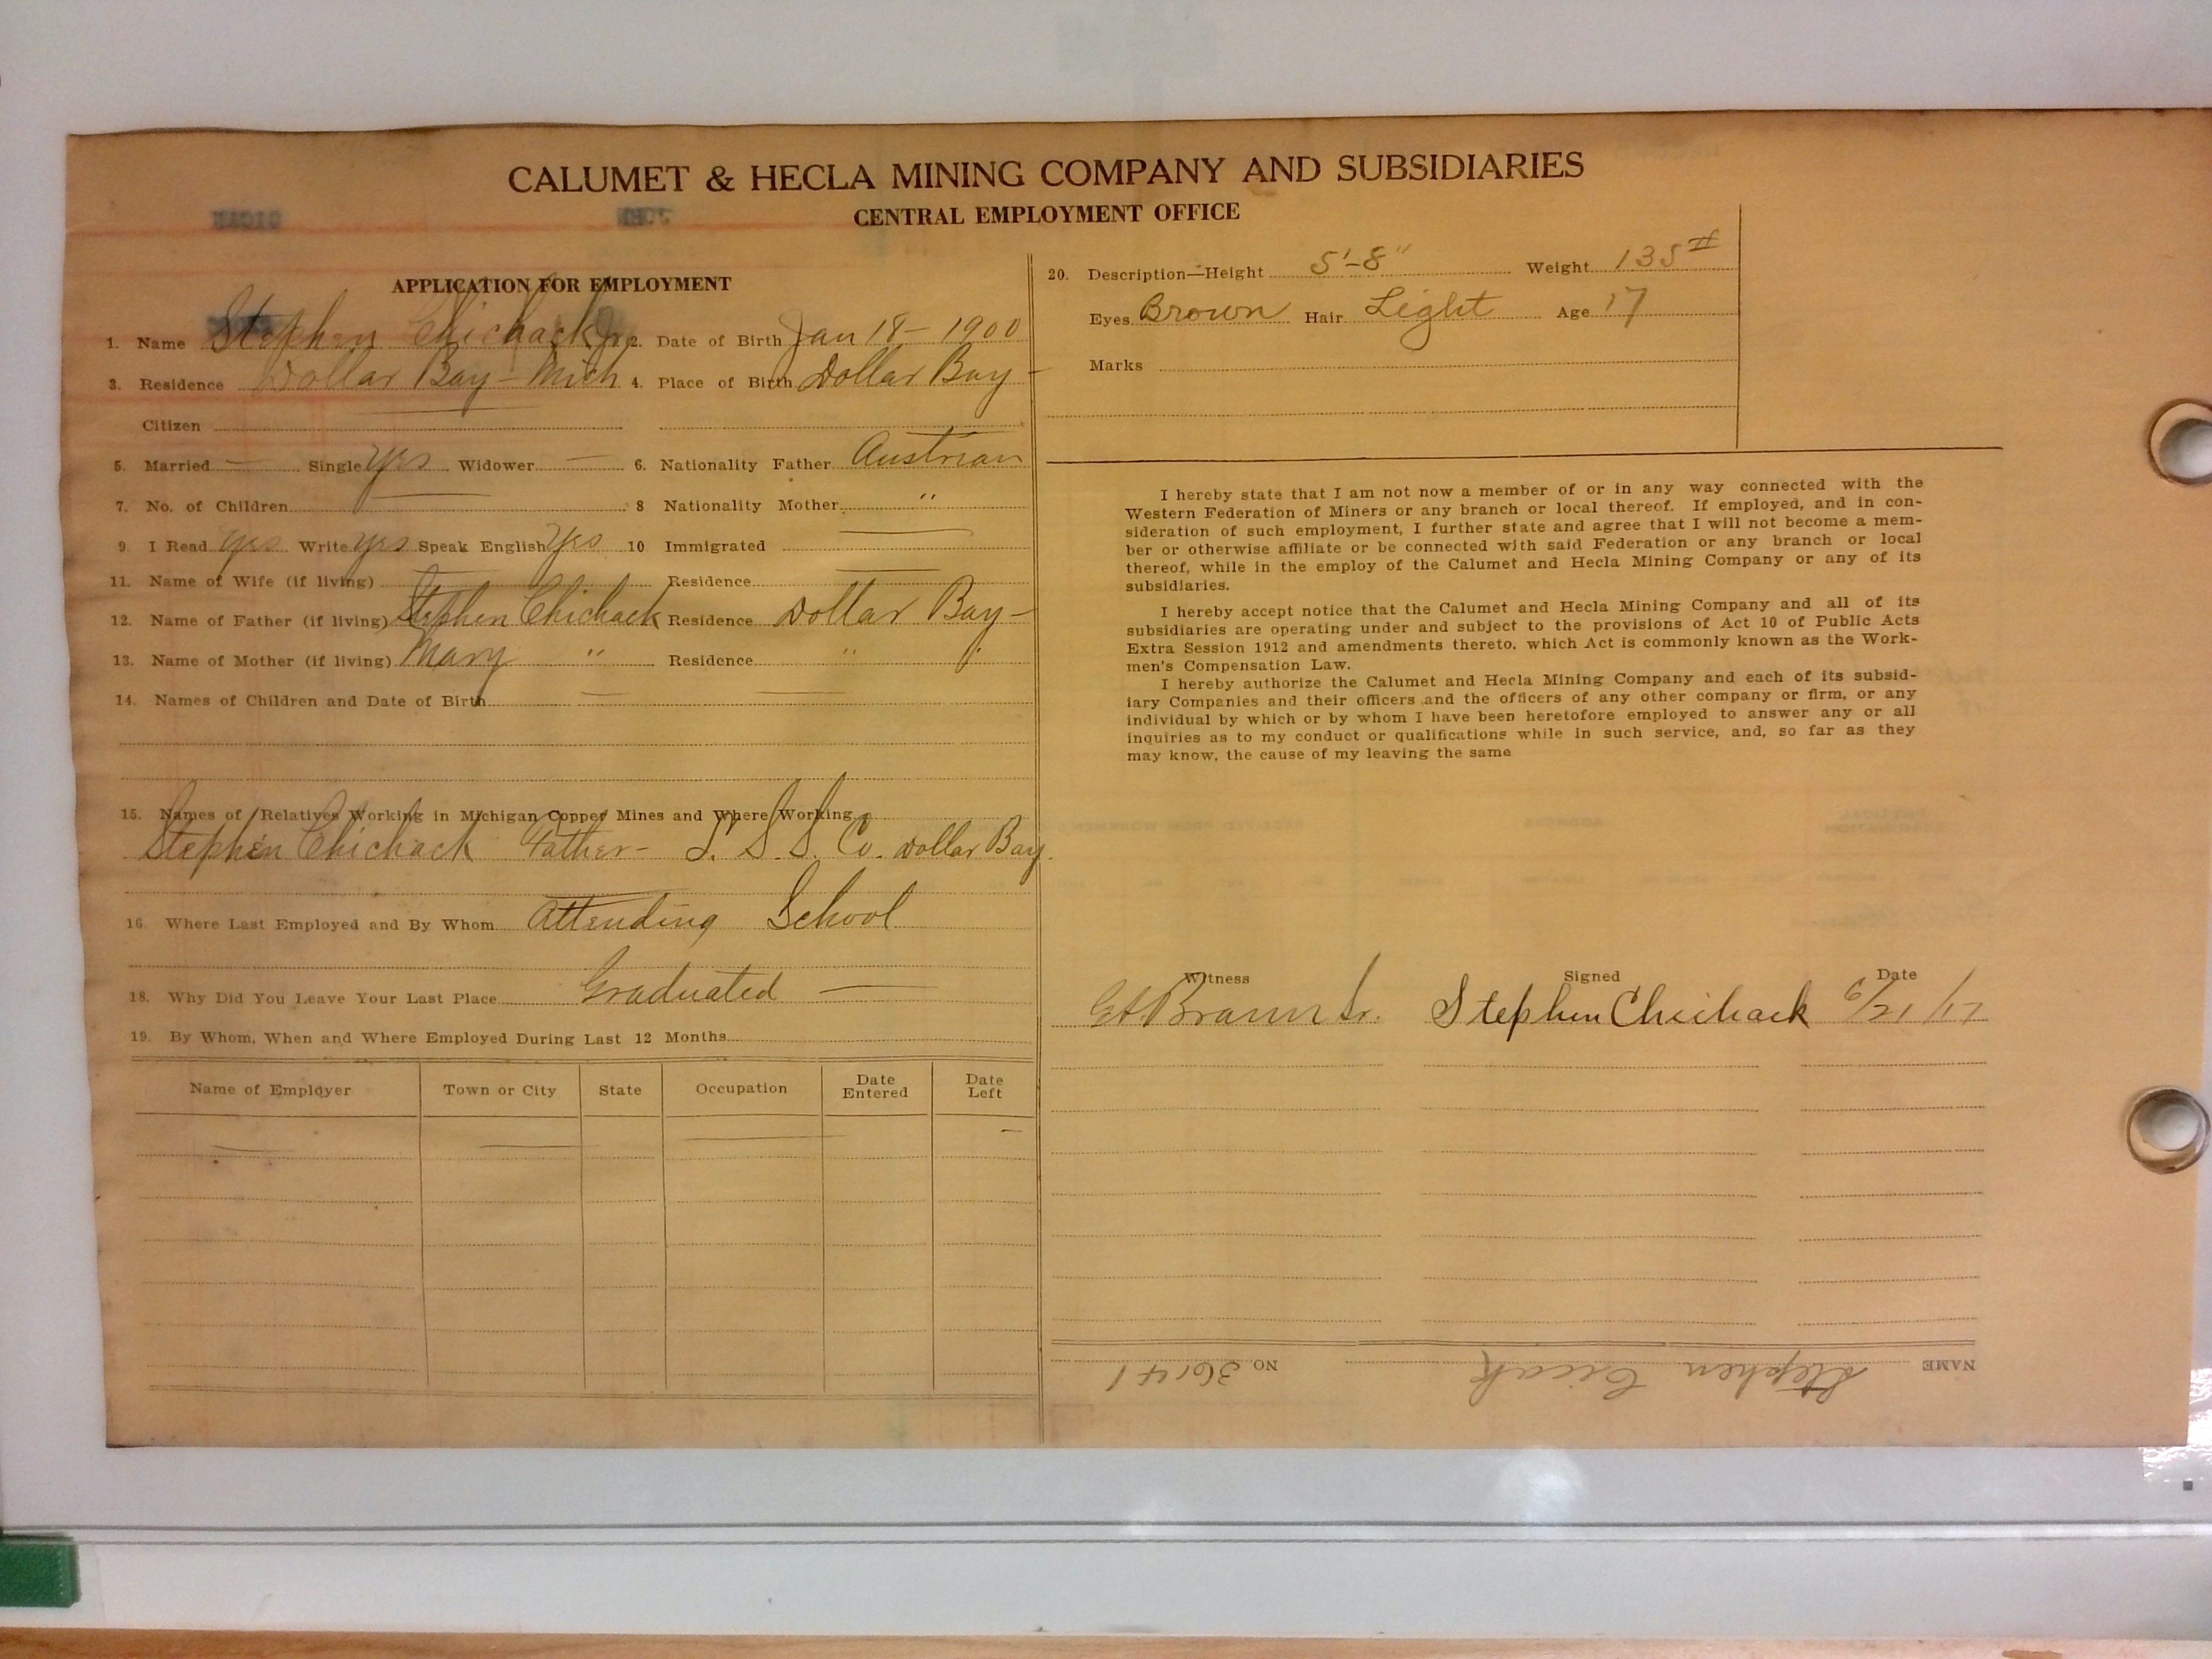 CALUMET & HECLA MINING COMPANY AND SUBSIDIARIES
CENTRAL EMPLOYMENT OFFICE
APPLICATION FOR EMPLOYMENT
1. Name Stephen Chichack Jr. 2. Date of Birth Jan 18 - 1900
3. Residence Dollar Bay - Mich 4. Place of Birth Dollar Bay -
Citizen
5. Married — Single Yes Widower — 6. Nationality Father Austrian
7. No. of Children — 8 Nationality Mother "
9. I Read Yes Write Yes Speak English Yes 10 Immigrated —
11. Name of Wife (if living) — Residence —
12. Name of Father (if living) Stephen Chichack Residence Dollar Bay -
13. Name of Mother (if living) Mary " Residence " "
14. Names of Children and Date of Birth — —
15. Names of Relatives Working in Michigan Copper Mines and Where Working
Stephen Chichack Father - L. S. S. Co. Dollar Bay.
16. Where Last Employed and By Whom Attending School
18. Why Did You Leave Your Last Place Graduated —
19. By Whom, When and Where Employed During Last 12 Months
Name of Employer Town or City State Occupation Date Entered Date Left
20. Description—Height 5'-8" Weight 135 #
Eyes Brown Hair Light Age 17
Marks
I hereby state that I am not now a member of or in any way connected with the
Western Federation of Miners or any branch or local thereof. If employed, and in con-
sideration of such employment, I further state and agree that I will not become a mem-
ber or otherwise affiliate or be connected with said Federation or any branch or local
thereof, while in the employ of the Calumet and Hecla Mining Company or any of its
subsidiaries.
I hereby accept notice that the Calumet and Hecla Mining Company and all of its
subsidiaries are operating under and subject to the provisions of Act 10 of Public Acts
Extra Session 1912 and amendments thereto, which Act is commonly known as the Work-
men's Compensation Law.
I hereby authorize the Calumet and Hecla Mining Company and each of its subsid-
iary Companies and their officers and the officers of any other company or firm, or any
individual by which or by whom I have been heretofore employed to answer any or all
inquiries as to my conduct or qualifications while in such service, and, so far as they
may know, the cause of my leaving the same
Witness Signed Date
Stephen Chichack 6/21/17
NAME Stephen Cicak NO 36141